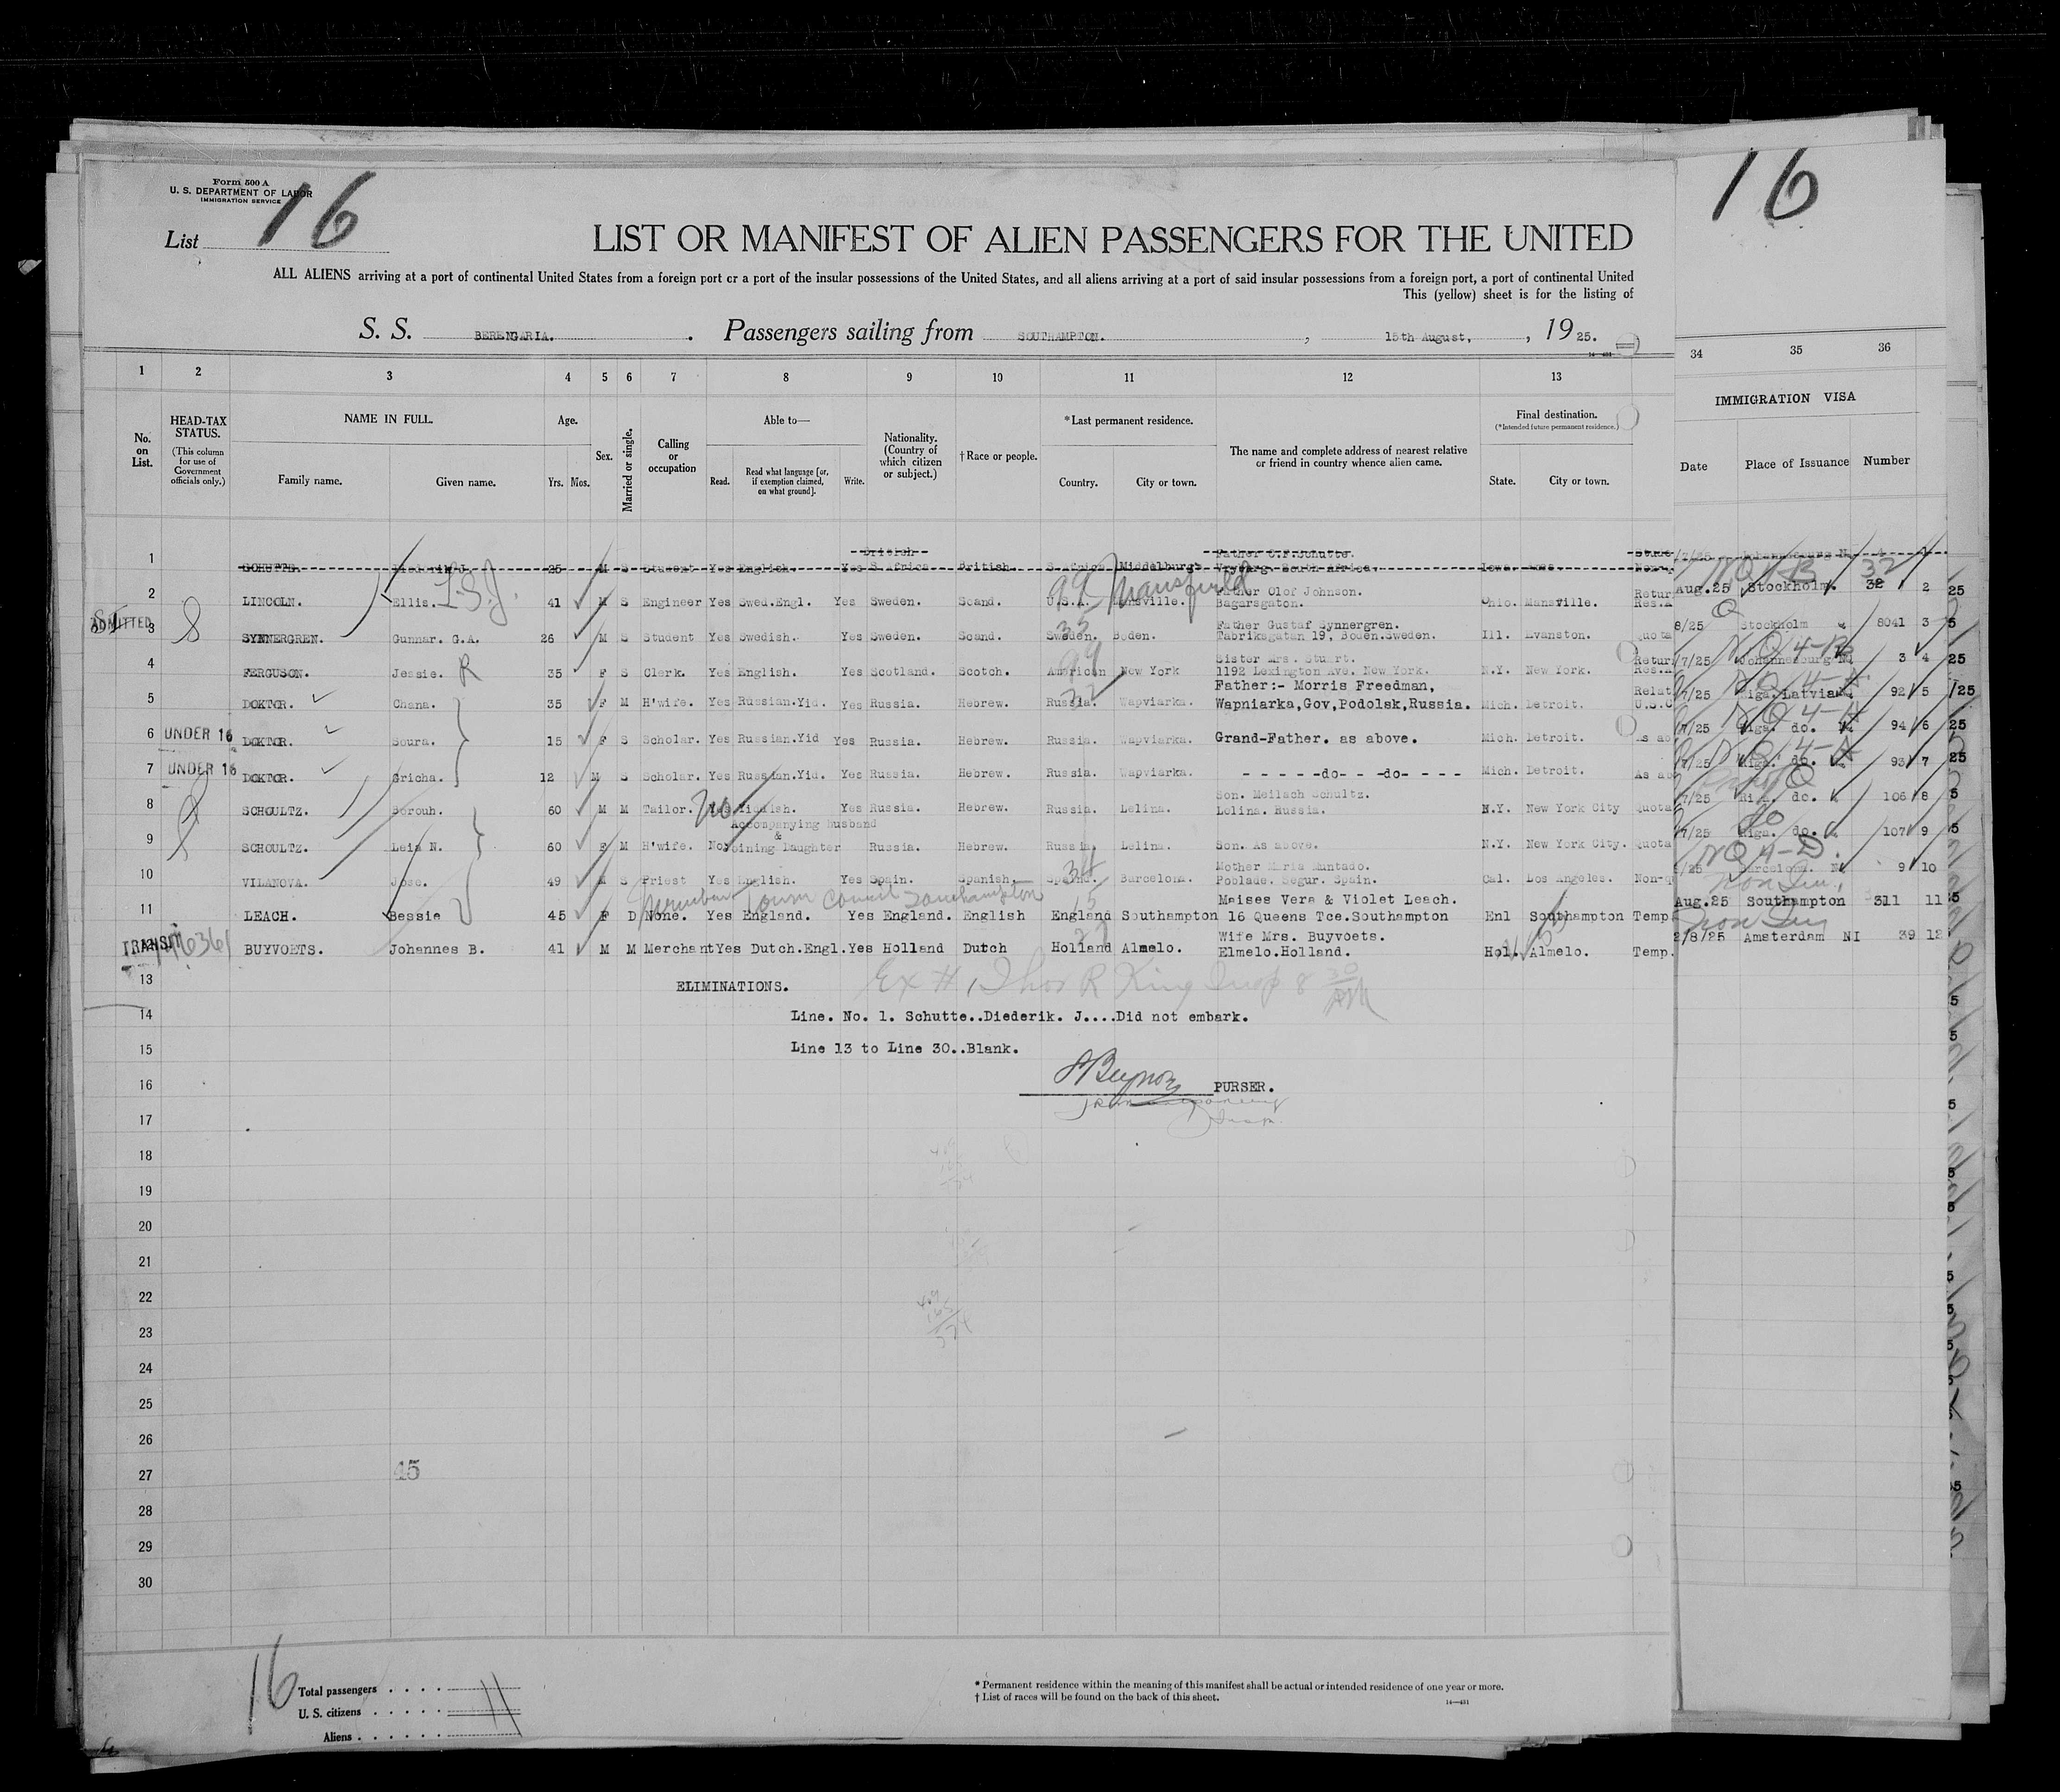 Form 500 A
U. S. DEPARTMENT OF LABOR
IMMIGRATION SERVICE
List 16
16
LIST OR MANIFEST OF ALIEN PASSENGERS FOR THE UNITED
ALL ALIENS arriving at a port of continental United States from a foreign port or a port of the insular possessions of the United States, and all aliens arriving at a port of said insular possessions from a foreign port, a port of continental United
This (yellow) sheet is for the listing of
S. S. BERENGARIA. Passengers sailing from SOUTHAMPTON. , 15th August, , 19 25.
1 2 3 4 5 6 7 8 9 10 11 12 13 34 35 36
No. on List.
HEAD-TAX STATUS.
(This column for use of Government officials only.)
NAME IN FULL.
Family name. Given name.
Age.
Yrs. Mos.
Sex.
Married or single.
Calling or occupation
Able to—
Read. Read what language [or, if exemption claimed, on what ground]. Write.
Nationality. (Country of which citizen or subject.)
† Race or people.
* Last permanent residence.
Country. City or town.
The name and complete address of nearest relative or friend in country whence alien came.
Final destination.
(*Intended future permanent residence.)
State. City or town.
IMMIGRATION VISA
Date Place of Issuance Number
British Father C.F.Schutte.
1 SCHUTTE. Diederik J. 25 M S Student Yes English. Yes S.Africa British. S.Africa Middelburg Vryburg. South Africa. Iowa. Ames. Non-q /7/25 Johannesburg N
NQ 4-B 32
Mansfield
Father Olof Johnson. Retur
2 LINCOLN. Ellis. 41 M S Engineer Yes Swed.Engl. Yes Sweden. Scand. U.S.A. Mansville. Bagarsgaton. Ohio. Mansville. Res.A Aug.25 Stockholm. 32 2 25
ADMITTED
Father Gustaf Synnergren.
3 SYNNERGREN. Gunnar. G.A. 26 M S Student Yes Swedish. Yes Sweden. Scand. Sweden. Boden. Fabriksgatan 19, Boden.Sweden. Ill. Evanston. Quota 8/25 Stockholm 8041 3 5
Sister Mrs. Stuart. Retur
4 FERGUSON. Jessie. R 35 F S Clerk. Yes English. Yes Scotland. Scotch. American New York 1192 Lexington Ave. New York. N.Y. New York. Res.A /7/25 Johannesburg N. 3 4 25
Father:- Morris Freedman, Relat
5 DOKTOR. Chana. 35 F M H'wife. Yes Russian.Yid. Yes Russia. Hebrew. Russia. Wapviarka. Wapniarka,Gov,Podolsk,Russia. Mich. Detroit. U.S.C /7/25 Riga. Latvia 92 5 /25
6 UNDER 16 DOKTOR. Soura. 15 F S Scholar. Yes Russian.Yid Yes Russia. Hebrew. Russia. Wapviarka. Grand-Father. as above. Mich. Detroit. As ab /7/25 Riga. do. 94 6 25
7 UNDER 16 DOKTOR. Gricha. 12 M S Scholar. Yes Russian.Yid. Yes Russia. Hebrew. Russia. Wapviarka - - - - -do- - -do- - - - Mich. Detroit. As ab /7/25 Riga. do. 93 7 25
Son. Meilach Schultz.
8 SCHOULTZ. Borouh. 60 M M Tailor. No Yes Yiddish. Yes Russia. Hebrew. Russia. Lelina. Lolina. Russia. N.Y. New York City Quota /7/25 Riga. do. 106 8 5
Accompanying husband
&
9 SCHOULTZ. Leia N. 60 F M H'wife. No Joining Daughter Russia. Hebrew. Russia. Lelina. Son. As above. N.Y. New York City. Quota /7/25 Riga. do. 107 9 5
NQ 4-D.
Mother Maria Muntado.
10 VILANOVA. Jose. 49 M S Priest Yes English. Yes Spain. Spanish. Spain. Barcelona. Poblade. Segur. Spain. Cal. Los Angeles. Non-q /25 Barcelona. N 9 10
Member Town Council Southampton
Meises Vera & Violet Leach.
11 LEACH. Bessie 45 F D None. Yes England. Yes England. English England Southampton 16 Queens Tce.Southampton Enl Southampton Temp. Aug.25 Southampton 311 11
Wife Mrs. Buyvoets.
TRANSIT
12 BUYVOETS. Johannes B. 41 M M Merchant Yes Dutch.Engl. Yes Holland Dutch Holland Almelo. Elmelo.Holland. Hol. Almelo. Temp. 2/8/25 Amsterdam NI 39 12
13 ELIMINATIONS.
14 Line. No. 1. Schutte..Diederik. J....Did not embark.
15 Line 13 to Line 30..Blank.
16 PURSER.
17
18
19
20
21
22
23
24
25
26
27 45
28
29
30
16
Total passengers . . . .
U. S. citizens . . . . . 11
Aliens . . . . . .
* Permanent residence within the meaning of this manifest shall be actual or intended residence of one year or more.
† List of races will be found on the back of this sheet.